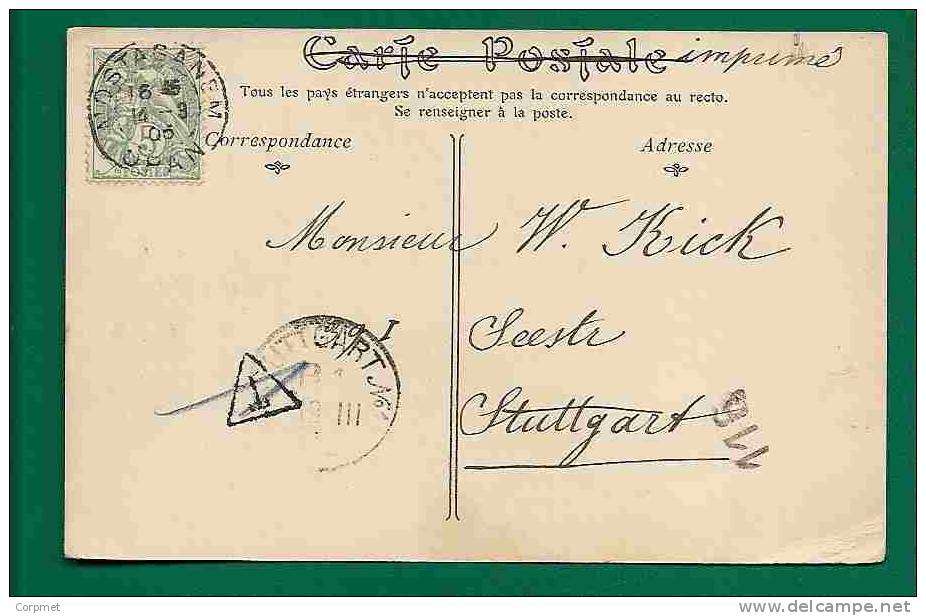 Carte Postale imprimé
Tous les pays étrangers n'acceptent pas la correspondance au recto.
Se renseigner à la poste.
MOSTAGANEM
ORAN
POSTES
Correspondance
Adresse
Monsieur W. Kick
Seestr
Stuttgart
STUTTGART No
III
T
116
Copyright : Corpmet
http://www.delcampe.net